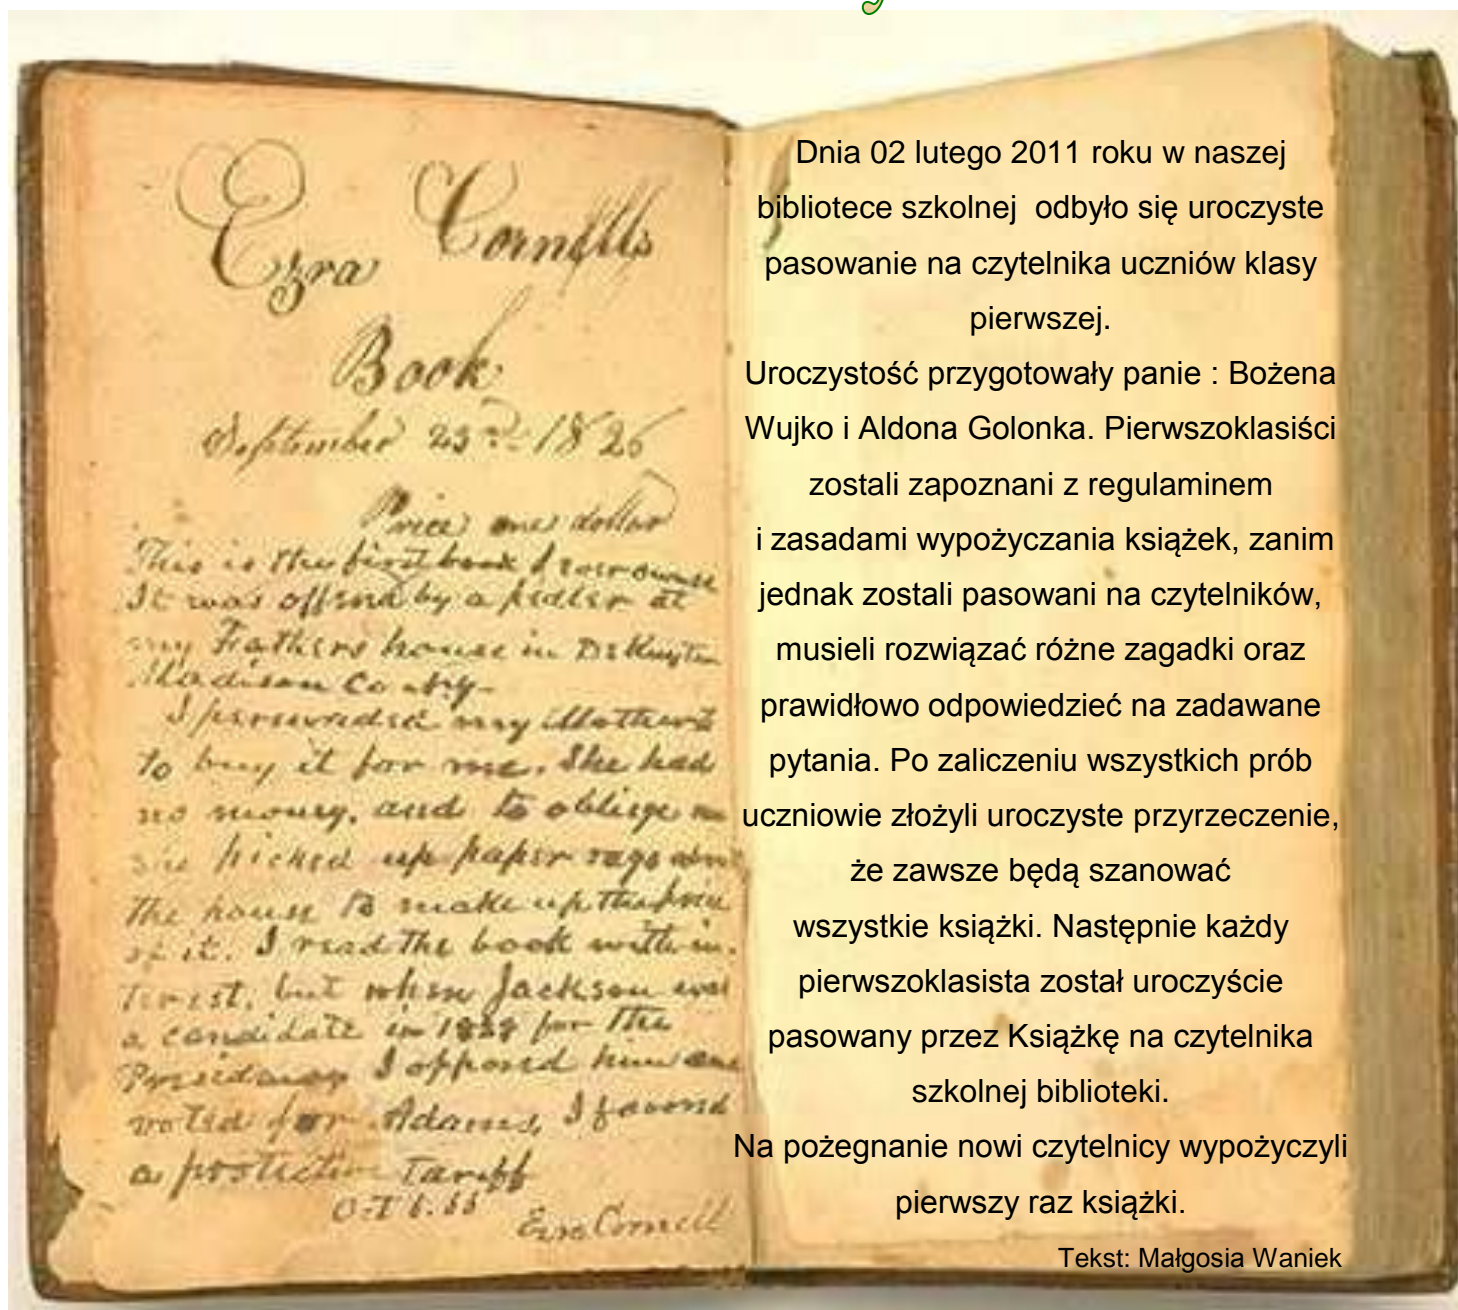 Ezra Cornells
Book
September 23rd 1826
Price one dollar
This is the first book I ever owned
It was offered by a pedler at
my Fathers house in DeRuyter
Madison Co NY-
I persuaded my Mother
to buy it for me. She had
no money, and to obliege me
she picked up paper rags about
the house to make up the price
of it. I read the book with in-
terest, but when Jackson was
a candidate in 1828 for the
Presidency I opposed him and
voted for Adams, I favored
a protective Tariff
Oct 6.
Ezra Cornell
Dnia 02 lutego 2011 roku w naszej
bibliotece szkolnej odbyło się uroczyste
pasowanie na czytelnika uczniów klasy
pierwszej.
Uroczystość przygotowały panie : Bożena
Wujko i Aldona Golonka. Pierwszoklasiści
zostali zapoznani z regulaminem
i zasadami wypożyczania książek, zanim
jednak zostali pasowani na czytelników,
musieli rozwiązać różne zagadki oraz
prawidłowo odpowiedzieć na zadawane
pytania. Po zaliczeniu wszystkich prób
uczniowie złożyli uroczyste przyrzeczenie,
że zawsze będą szanować
wszystkie książki. Następnie każdy
pierwszoklasista został uroczyście
pasowany przez Książkę na czytelnika
szkolnej biblioteki.
Na pożegnanie nowi czytelnicy wypożyczyli
pierwszy raz książki.
Tekst: Małgosia Waniek